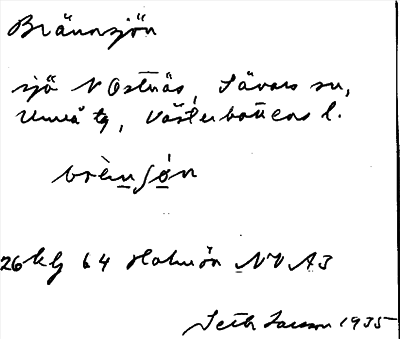 Brännsjön
sjö N Ostnäs, Sävars sn,
Umeå tg, Västerbottens l.
brènsón
26 kbl 64 Holmön NV A3
Seth Larsson 1935